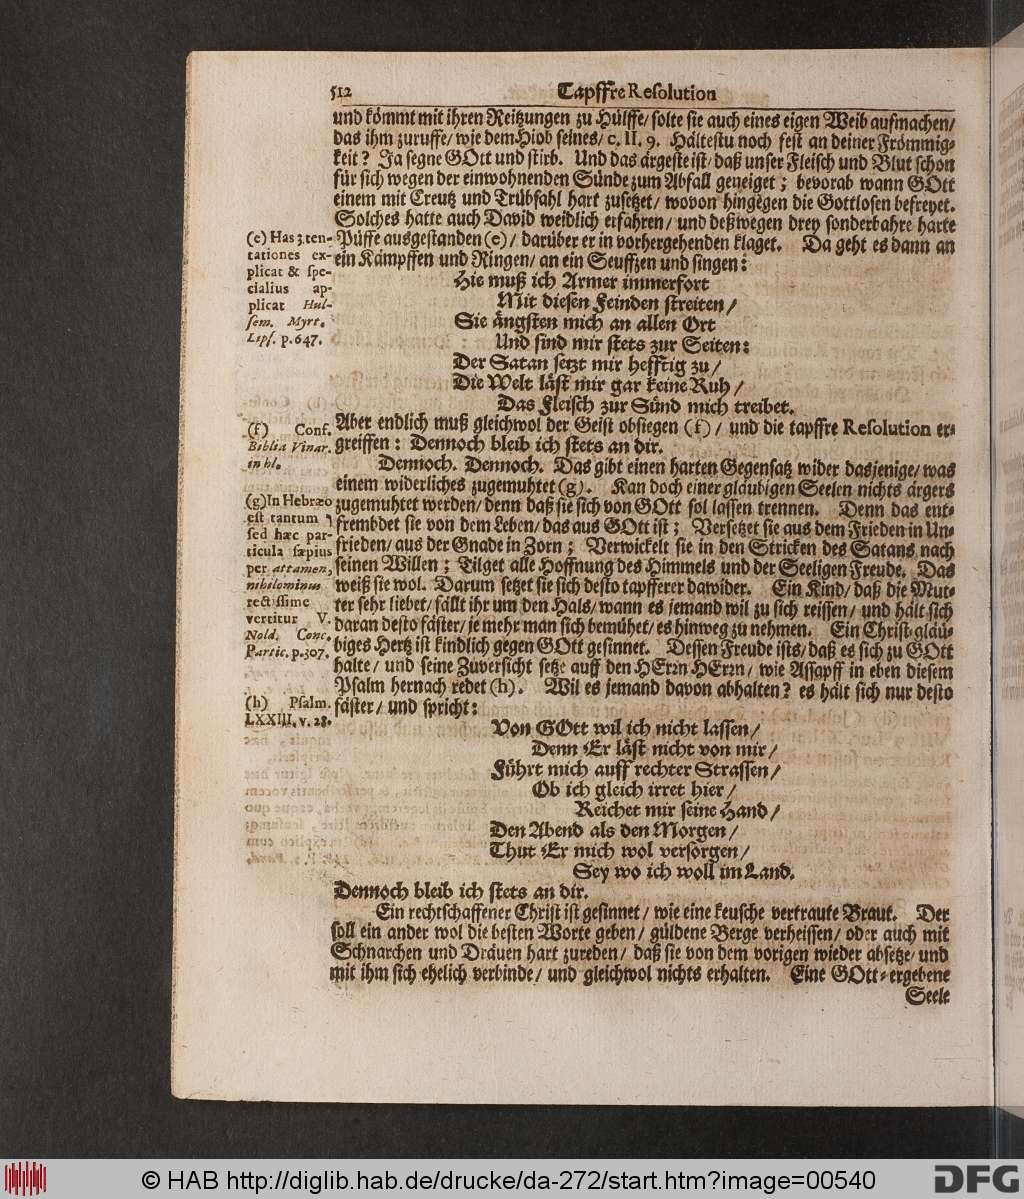 512 Tapffre Resolution
und kömmt mit ihren Reitzungen zu Hülffe/ solte sie auch eines eigen Weib aufmachen/
das ihm zuruffe/ wie dem Hiob seines/ c. II. 9. Hältestu noch fest an deiner Frömmig-
keit? Ja segne GOtt und stirb. Und das ärgeste ist/ daß unser Fleisch und Blut schon
für sich wegen der einwohnenden Sünde zum Abfall geneiget; bevorab wann GOtt
einem mit Creutz und Trübsahl hart zusetzet/ wovon hingegen die Gottlosen befreyet.
Solches hatte auch David weidlich erfahren/ und deßwegen drey sonderbahre harte
Püffe ausgestanden (e)/ darüber er in vorhergehenden klaget. Da geht es dann an
ein Kämpffen und Ringen/ an ein Seuffzen und singen:
Hie muß ich Armer immerfort
Mit diesen Feinden streiten/
Sie ängsten mich an allen Ort
Und sind mir stets zur Seiten:
Der Satan setzt mir hefftig zu/
Die Welt läst mir gar keine Ruh/
Das Fleisch zur Sünd mich treibet.
Aber endlich muß gleichwol der Geist obsiegen (f)/ und die tapffre Resolution er-
greiffen: Dennoch bleib ich stets an dir.
Dennoch. Dennoch. Das gibt einen harten Gegensatz wider dasjenige/ was
einem widerliches zugemuhtet (g). Kan doch einer gläubigen Seelen nichts ärgers
zugemuhtet werden/ denn daß sie sich von GOtt sol lassen trennen. Denn das ent-
frembdet sie von dem Leben/ das aus GOtt ist; Versetzet sie aus dem Frieden in Un-
frieden/ aus der Gnade in Zorn; Verwickelt sie in den Stricken des Satans nach
seinen Willen; Tilget alle Hoffnung des Himmels und der Seeligen Freude. Das
weiß sie wol. Darum setzet sie sich desto tapfferer dawider. Ein Kind/ daß die Mut-
ter sehr liebet/ fällt ihr um den Hals/ wann es jemand wil zu sich reissen/ und hält sich
daran desto fäster/ je mehr man sich bemühet/ es hinweg zu nehmen. Ein Christ-gläu-
biges Hertz ist kindlich gegen GOtt gesinnet. Dessen Freude ists/ daß es sich zu GOtt
halte/ und seine Zuversicht setze auff den HErrn HErrn/ wie Assapff in eben diesem
Psalm hernach redet (h). Wil es jemand davon abhalten? es hält sich nur desto
fäster/ und spricht:
Von GOtt wil ich nicht lassen/
Denn Er läst nicht von mir/
Führt mich auff rechter Strassen/
Ob ich gleich irret hier/
Reichet mir seine Hand/
Den Abend als den Morgen/
Thut Er mich wol versorgen/
Sey wo ich woll im Land.
Dennoch bleib ich stets an dir.
Ein rechtschaffener Christ ist gesinnet/ wie eine keusche vertraute Braut. Der
soll ein ander wol die besten Worte geben/ güldene Berge verheissen/ oder auch mit
Schnarchen und Dräuen hart zureden/ daß sie von dem vorigen wieder absetze/ und
mit ihm sich ehelich verbinde/ und gleichwol nichts erhalten. Eine GOtt-ergebene
Seele
(e) Has 3. ten-
tationes ex-
plicat & spe-
cialius ap-
plicat Hul-
sem. Myrt.
Lips. p. 647.
(f) Conf.
Biblia Vinar.
in hl.
(g) In Hebræo
est tantum ו
sed hæc par-
ticula sæpius
per attamen,
nihilominus
rectissime
vertitur V.
Nold. Conc.
Partic. p. 307.
(h) Psalm.
LXXIII, v. 28.
© HAB http://diglib.hab.de/drucke/da-272/start.htm?image=00540
DFG